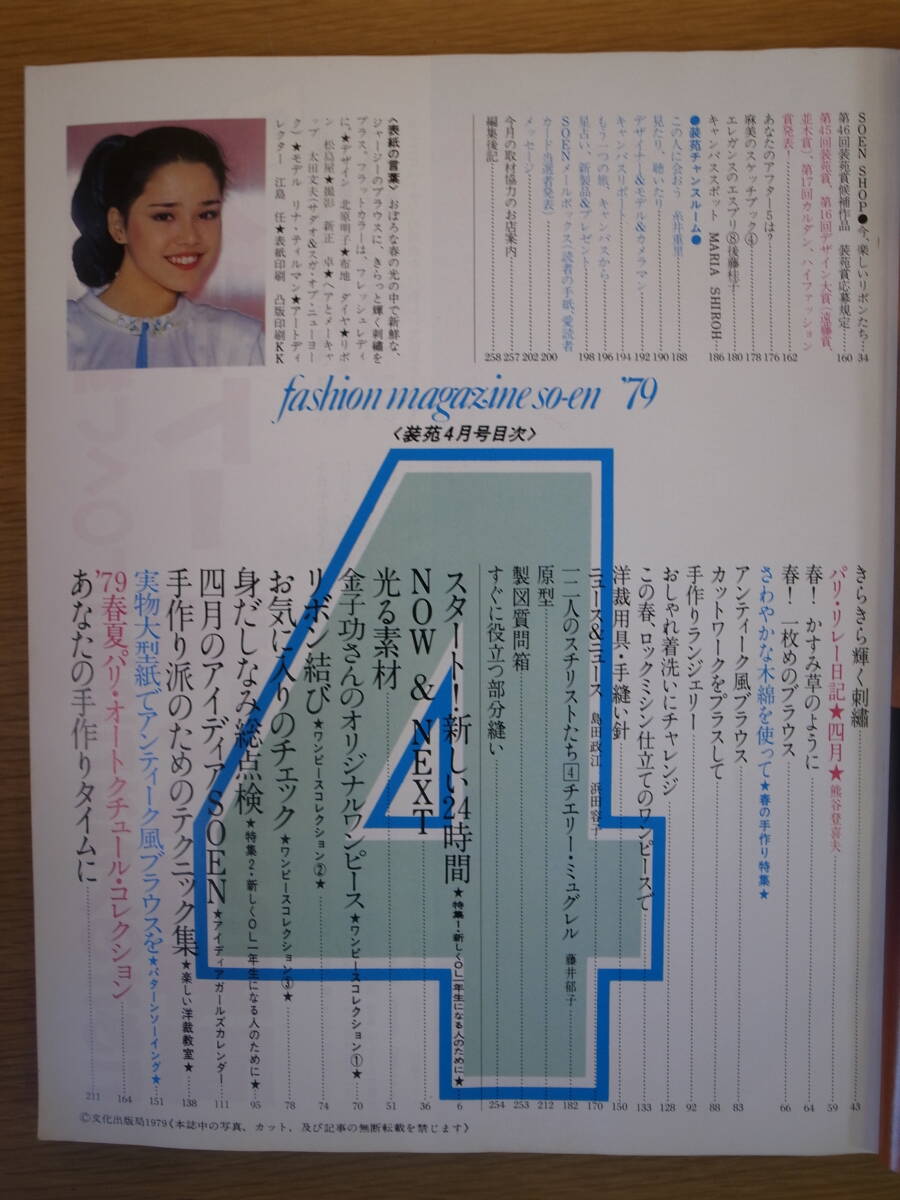 SOEN SHOP●今、楽しいリボンたち…34
第46回装苑賞候補作品 装苑賞応募規定…160
第45回装苑賞、第16回デザイン大賞、遠藤賞、
並木賞、第17回カルダン、ハイファッション
賞発表!…162
あなたのアフター5は?…176
麻美のスケッチブック④…178
エレガンスのエスプリ⑧後藤桂子…180
キャンパススポット MARIA SHIROH…186
●装苑チャンスルーム●
この人に会おう 糸井重里…188
見たり、聴いたり…190
デザイナー&モデル&カメラマン…192
キャンパスリポート…194
もう一つの旅、キャンパスから…196
星占い、新製品&プレゼント…198
SOENメールボックス(読者の手紙、愛読者
カード当選者発表)…200
メッセージ…202
今月の取材協力のお店案内…257
編集後記…258
〈表紙の言葉〉おぼろな春の光の中で新鮮な、
ジャージーのブラウスに、きらっと輝く刺繍を
プラス。フラットカラーは、フレッシュレディ
に。★デザイン 北原明子★布地 ダイヤ★リボ
ン 松島屋★撮影 新正 卓★ヘアとメーキャ
ップ 太田文夫(サダオ&スガ・オブ・ニューヨー
ク)★モデル リナ・ティルマン★アートディ
レクター 江島 任★表紙印刷 凸版印刷KK
fashion magazine so-en '79
〈装苑4月号目次〉
4
きらきら輝く刺繍…43
パリ・リレー日記★四月★熊谷登喜夫…59
春!かすみ草のように…64
春!一枚めのブラウス…66
さわやかな木綿を使って★春の手作り特集★
アンティーク風ブラウス…83
カットワークをプラスして…88
手作りランジェリー…92
おしゃれ着洗いにチャレンジ…128
この春、ロックミシン仕立てのワンピースで…133
洋裁用具・手縫い針
ニュース&ニュース 島田政江 浜田容子…170
一二人のスチリストたち④チエリー・ミュグレル 藤井郁子…182
原型…212
製図質問箱…253
すぐに役立つ部分縫い…254
スタート!新しい24時間★特集1・新しくOL一年生になる人のために★…6
NOW & NEXT…36
光る素材…51
金子功さんのオリジナルワンピース★ワンピースコレクション①★…70
リボン結び★ワンピースコレクション②★…74
お気に入りのチェック★ワンピースコレクション③★…78
身だしなみ総点検★特集2・新しくOL一年生になる人のために★…95
四月のアイディアSOEN★アイディアガールズカレンダー…111
手作り派のためのテクニック集★楽しい洋裁教室★…138
実物大型紙でアンティーク風ブラウスを★パターンソーイング★…151
'79春夏パリ・オートクチュール・コレクション…164
あなたの手作りタイムに…211
©文化出版局1979《本誌中の写真、カット、及び記事の無断転載を禁じます》